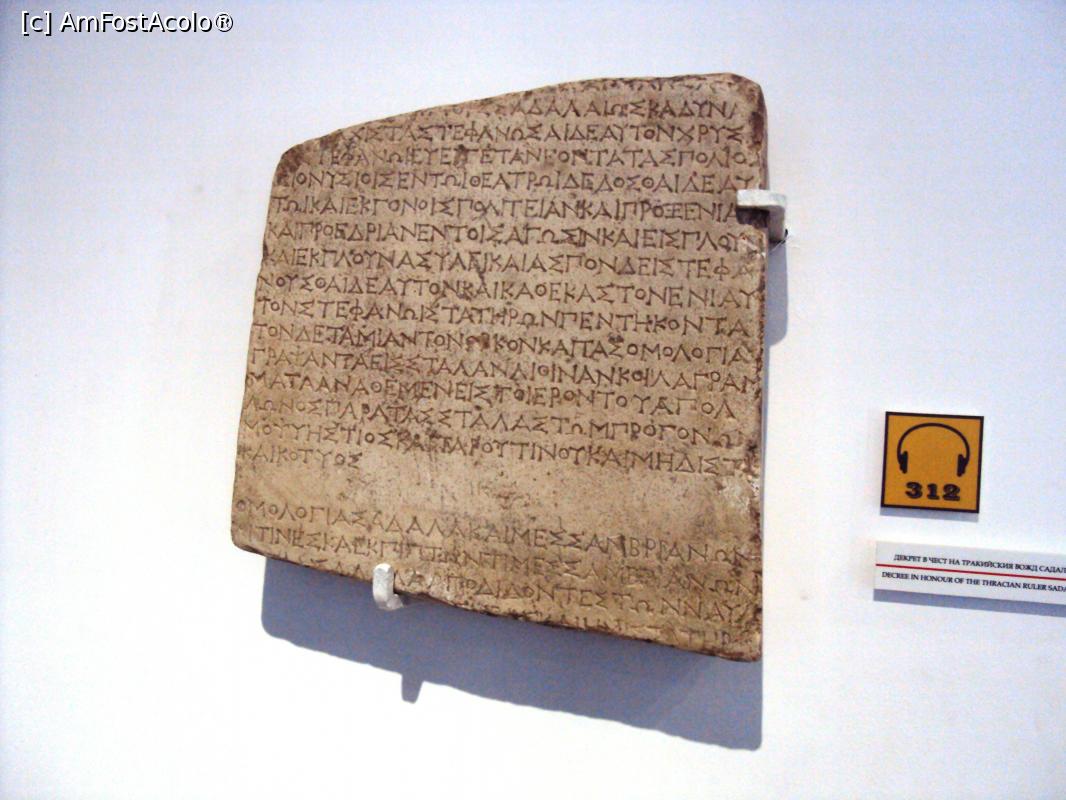 [c] AmFostAcolo®
ΣΑΔΑΛΑΙΩΣΚΑΔΥΝΑ
ΑΧΙΣΤΑΣΤΕΦΑΝΩΣΑΙΔΕΑΥΤΟΝΧΡΥΣ
ΤΕΦΑΝΩΙΕΥΕΡΓΕΤΑΝΕΟΝΤΑΤΑΣΠΟΛΙΟ
ΔΙΟΝΥΣΙΟΙΣΕΝΤΩΙΘΕΑΤΡΩΙΔΕΔΟΣΘΑΙΔΕΑΥ
ΤΩΙΚΑΙΕΚΓΟΝΟΙΣΠΟΛΙΤΕΙΑΝΚΑΙΠΡΟΞΕΝΙΑ
ΚΑΙΠΡΟΕΔΡΙΑΝΕΝΤΟΙΣΑΓΩΣΙΝΚΑΙΕΙΣΠΛΟΥΝ
ΚΑΙΕΚΠΛΟΥΝΑΣΥΛΕΙΚΑΙΑΣΠΟΝΔΕΙΣΤΕΦΑ
ΝΟΥΣΘΑΙΔΕΑΥΤΟΝΚΑΙΚΑΘΕΚΑΣΤΟΝΕΝΙΑΥ
ΤΟΝΣΤΕΦΑΝΩΙΣΤΑΤΗΡΩΝΠΕΝΤΗΚΟΝΤΑ
ΤΟΝΔΕΤΑΜΙΑΝΤΟΝΟΡΚΟΝΚΑΙΤΑΣΟΜΟΛΟΓΙΑ
ΓΡΑΨΑΝΤΑΕΙΣΣΤΑΛΑΝΛΙΘΙΝΑΝΚΟΙΛΑΓΡΑΜ
ΜΑΤΑΑΝΑΘΕΜΕΝΕΙΣΤΟΙΕΡΟΝΤΟΥΑΠΟΛ
ΛΩΝΟΣΠΑΡΑΤΑΣΣΤΑΛΑΣΤΩΜΠΡΟΓΟΝΩ
ΜΟΨΥΗΣΤΙΟΣΚΑΙΤΑΡΟΥΤΙΝΟΥΚΑΙΜΗΔΙΣΤΑ
ΚΑΙΚΟΤΥΟΣ
ΟΜΟΛΟΓΙΑΣΑΔΑΛΑΚΑΙΜΕΣΣΑΜΒΡΙΑΝΩΝ
ΑΠΟΔΙΔΟΝΤΕΣΤΩΝΝΑΥ
312
ДЕКРЕТ В ЧЕСТ НА ТРАКИЙСКИЯ ВОЖД
DECREE IN HONOUR OF THE THRACIAN RULER